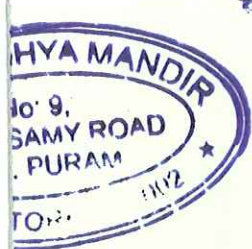 HYA MANDIR
No. 9,
SAMY ROAD
. PURAM
002
TOR.